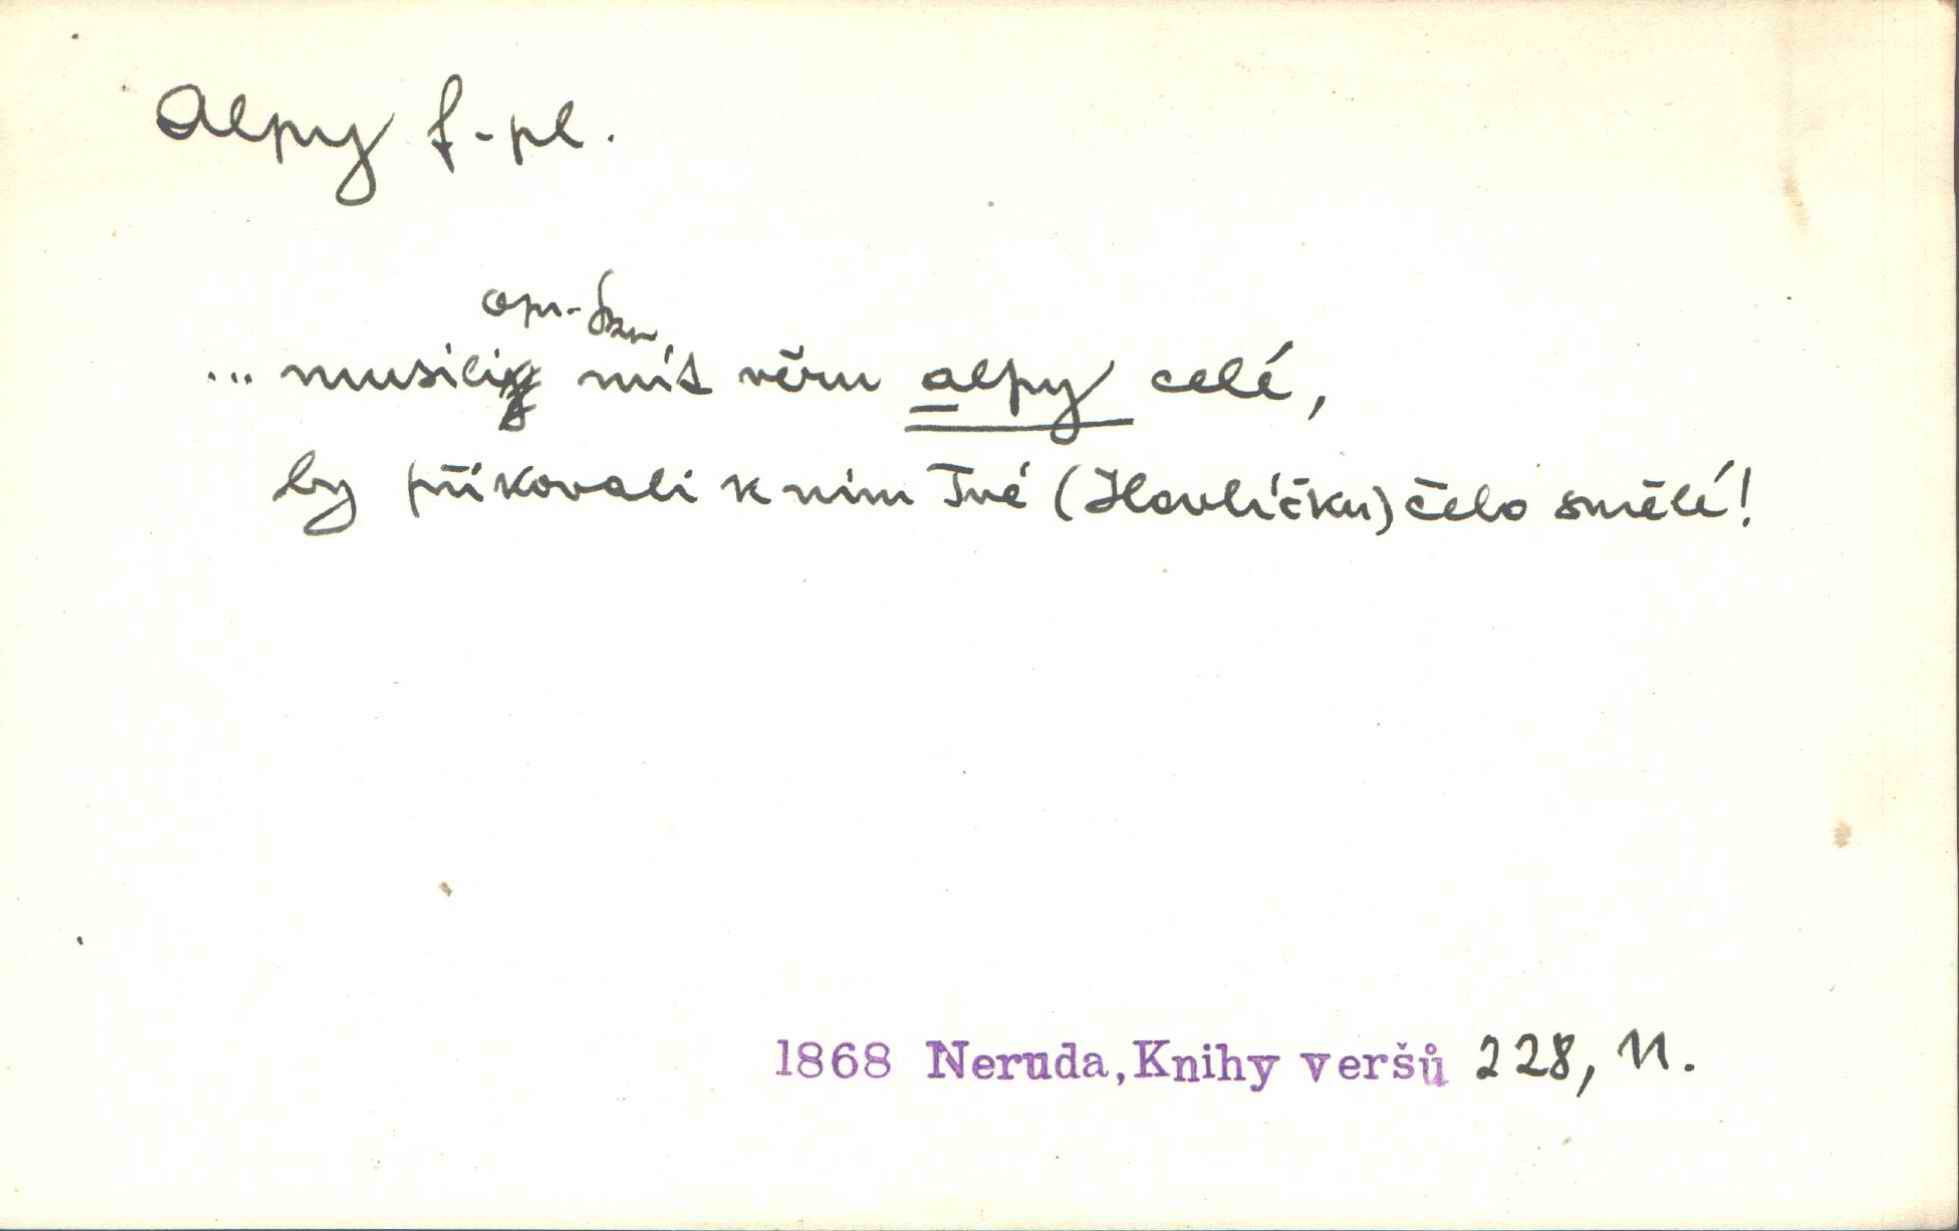 Alpy f-pl.
... musili mít věru alpy celé,
by přikovali k nim Tvé (Havlíčku) čelo smělé!
1868 Neruda, Knihy veršů 228, N.